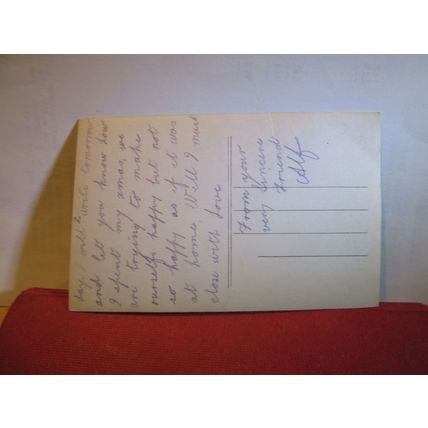 day, I will write tomorrow
and let you know how
I spent my xmas, we
are trying to make
ourselfs happy but not
so happy as if it was
at home. Well I must
close with Love
From your
very Sincere
Friend
Alf